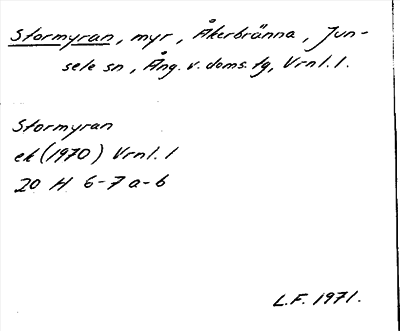 Stormyran, myr, Åkerbränna, Jun-
sele sn, Ång. v. doms. tg, Vrnl. 1.
Stormyran
ek (1970) Vrnl. 1
20 H 6-7 a-b
L.F. 1971.